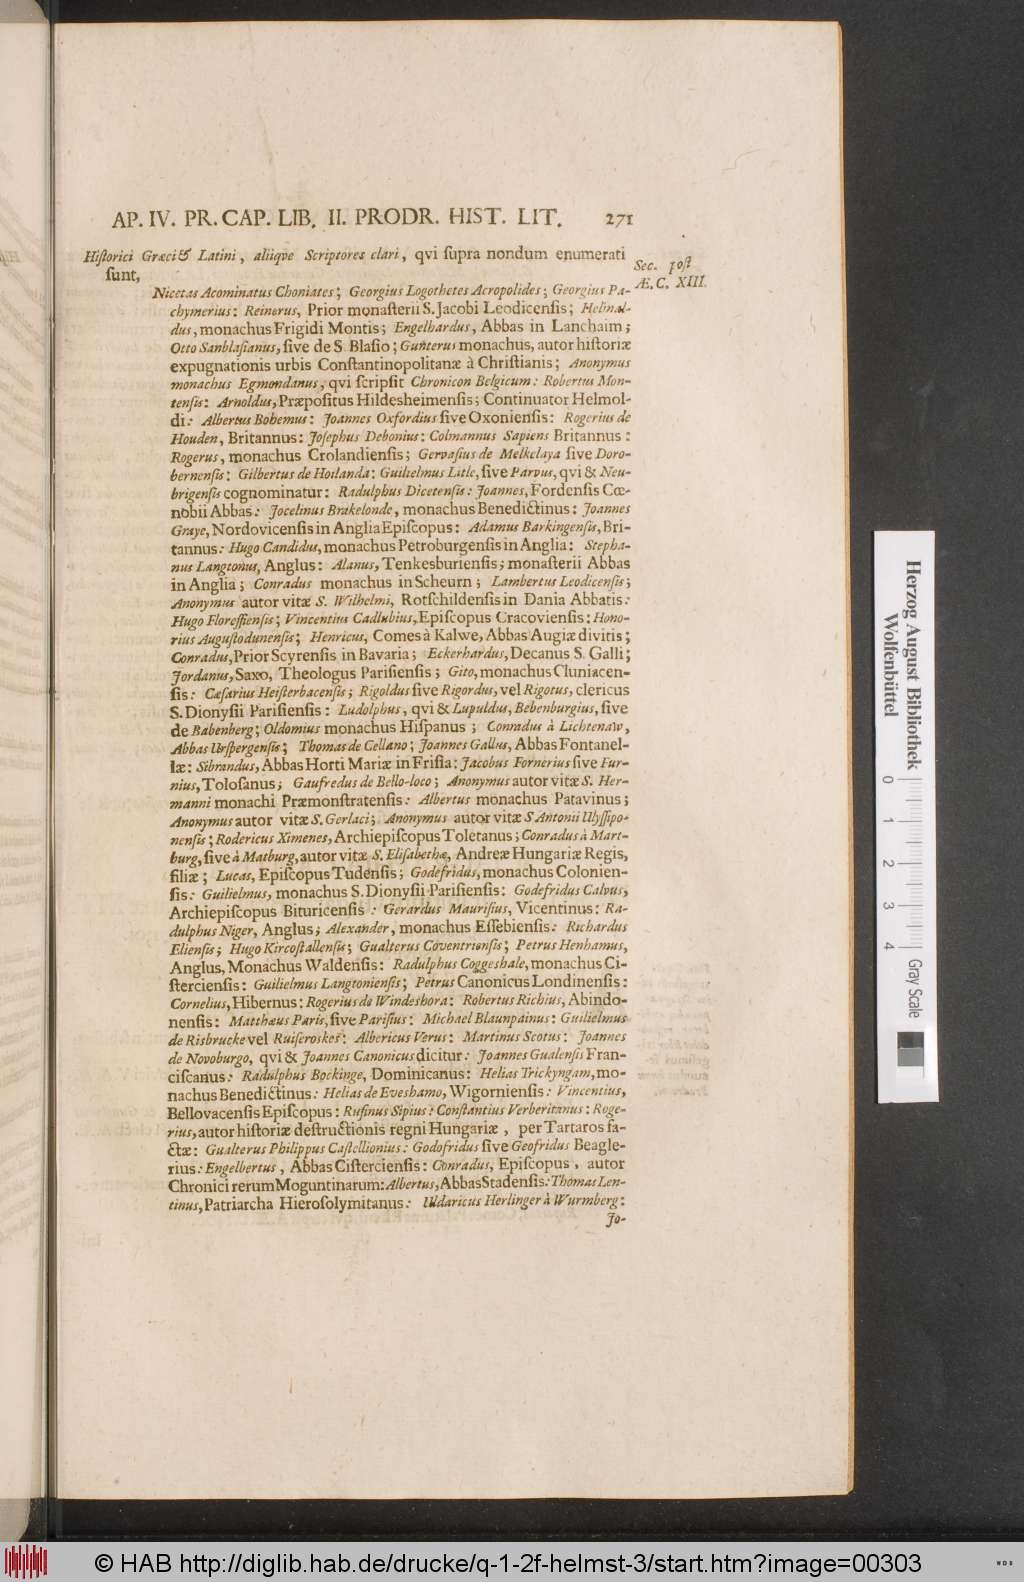 AP. IV. PR. CAP. LIB. II. PRODR. HIST. LIT. 271
Hiſtorici Græci & Latini, aliiqve Scriptores clari, qvi ſupra nondum enumerati
ſunt,
Sec. poſt
Æ. C. XIII.
Nicetas Acominatus Choniates; Georgius Logothetes Acropolides; Georgius Pa-
chymerius: Reinerus, Prior monaſterii S. Jacobi Leodicenſis; Helinal-
dus, monachus Frigidi Montis; Engelhardus, Abbas in Lanchaim;
Otto Sanblaſianus, ſive de S. Blaſio; Gunterus monachus, autor hiſtoriæ
expugnationis urbis Conſtantinopolitanæ à Chriſtianis; Anonymus
monachus Egmondanus, qvi ſcripſit Chronicon Belgicum: Robertus Mon-
tenſis: Arnoldus, Præpoſitus Hildesheimenſis; Continuator Helmol-
di: Albertus Bohemus: Joannes Oxfordius ſive Oxonienſis: Rogerius de
Houden, Britannus: Joſephus Debonius: Colmannus Sapiens Britannus:
Rogerus, monachus Crolandienſis; Gervaſius de Melkelaya ſive Doro-
bernenſis: Gilbertus de Hoilanda: Guilielmus Litle, ſive Parvus, qvi & Neu-
brigenſis cognominatur: Radulphus Dicetenſis: Joannes, Fordenſis Cœ-
nobii Abbas: Jocelinus Brakelonde, monachus Benedictinus: Joannes
Graye, Nordovicenſis in Anglia Epiſcopus: Adamus Barkingenſis, Bri-
tannus: Hugo Candidus, monachus Petroburgenſis in Anglia: Stepha-
nus Langtonus, Anglus: Alanus, Tenkesburienſis, monaſterii Abbas
in Anglia; Conradus monachus in Scheurn; Lambertus Leodicenſis;
Anonymus autor vitæ S. Wilhelmi, Rotſchildenſis in Dania Abbatis:
Hugo Floreffienſis; Vincentius Cadlubius, Epiſcopus Cracovienſis: Hono-
rius Auguſtodunenſis; Henricus, Comes à Kalwe, Abbas Augiæ divitis;
Conradus, Prior Scyrenſis in Bavaria; Eckerhardus, Decanus S. Galli;
Jordanus, Saxo, Theologus Pariſienſis; Gito, monachus Cluniacen-
ſis: Cæſarius Heiſterbacenſis; Rigoldus ſive Rigordus, vel Rigotus, clericus
S. Dionyſii Pariſienſis: Ludolphus, qvi & Lupuldus, Bebenburgius, ſive
de Babenberg; Oldomius monachus Hiſpanus; Conradus à Lichtenaw,
Abbas Urſpergenſis; Thomas de Cellano; Joannes Gallus, Abbas Fontanel-
læ: Sibrandus, Abbas Horti Mariæ in Friſia: Jacobus Fornerius ſive Fur-
nius, Toloſanus; Gaufredus de Bello-loco; Anonymus autor vitæ S. Her-
manni monachi Præmonſtratenſis: Albertus monachus Patavinus;
Anonymus autor vitæ S. Gerlaci; Anonymus autor vitæ S Antonii Ulyſſipo-
nenſis; Rodericus Ximenes, Archiepiſcopus Toletanus; Conradus à Mart-
burg, ſive à Matburg, autor vitæ S. Eliſabethæ, Andreæ Hungariæ Regis,
filiæ; Lucas, Epiſcopus Tudenſis; Godefridus, monachus Colonien-
ſis: Guilielmus, monachus S. Dionyſii Pariſienſis: Godefridus Calvus,
Archiepiſcopus Bituricenſis: Gerardus Mauriſius, Vicentinus: Ra-
dulphus Niger, Anglus; Alexander, monachus Eſſebienſis: Richardus
Elienſis; Hugo Kircoſtallenſis; Gualterus Coventrienſis; Petrus Henhamus,
Anglus, Monachus Waldenſis: Radulphus Coggeshale, monachus Ci-
ſtercienſis: Guilielmus Langtonienſis; Petrus Canonicus Londinenſis:
Cornelius, Hibernus: Rogerius de Windeshora: Robertus Richius, Abindo-
nenſis: Matthæus Paris, ſive Pariſius: Michael Blaunpainus: Guilielmus
de Risbrucke vel Ruiſeroskes: Albericus Verus: Martinus Scotus: Joannes
de Novoburgo, qvi & Joannes Canonicus dicitur: Joannes Gualenſis Fran-
ciſcanus: Radulphus Bockinge, Dominicanus: Helias Trickyngam, mo-
nachus Benedictinus: Helias de Eveshamo, Wigornienſis: Vincentius,
Bellovacenſis Epiſcopus: Rufinus Sipius: Conſtantius Verberitanus: Roge-
rius, autor hiſtoriæ deſtructionis regni Hungariæ, per Tartaros fa-
ctæ: Gualterus Philippus Caſtellionius: Godofridus ſive Geofridus Beagle-
rius: Engelbertus, Abbas Ciſtercienſis: Conradus, Epiſcopus, autor
Chronici rerum Moguntinarum: Albertus, Abbas Stadenſis: Thomas Len-
tinus, Patriarcha Hieroſolymitanus: Uldaricus Herlinger à Wurmberg:
Jo-
Herzog August Bibliothek
Wolfenbüttel
0 1 2 3 4
Gray Scale
© HAB http://diglib.hab.de/drucke/q-1-2f-helmst-3/start.htm?image=00303
WDB